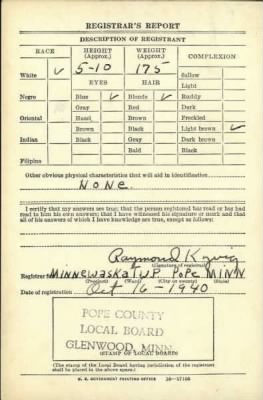 REGISTRAR'S REPORT
DESCRIPTION OF REGISTRANT
RACE HEIGHT (Approx.) WEIGHT (Approx.) COMPLEXION
White ✓ 5-10 175 Sallow
EYES HAIR Light
Negro Blue ✓ Blonde ✓ Ruddy
Gray Red Dark
Oriental Hazel Brown Freckled
Brown Black Light brown ✓
Indian Black Gray Dark brown
Bald Black
Filipino
Other obvious physical characteristics that will aid in identification
None.
I certify that my answers are true; that the person registered has read or has had
read to him his own answers; that I have witnessed his signature or mark and that
all of his answers of which I have knowledge are true, except as follows:
Raymond
(Signature of registrar)
Registrar for Minnewaska TWP. Pope MINN
(Precinct) (Ward) (City or county) (State)
Date of registration Oct 16-1940
POPE COUNTY
LOCAL BOARD
GLENWOOD, MINN.
(STAMP OF LOCAL BOARD)
(The stamp of the Local Board having jurisdiction of the registrant
shall be placed in the above space.)
U. S. GOVERNMENT PRINTING OFFICE 16-17105